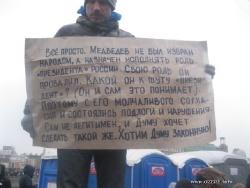 Все просто. Медведев не был избран
народом, а назначен исполнять роль
"президента" России. Свою роль он
провалил. Какой он к шуту "прези-
дент"? (Он и сам это понимает)
Поэтому с его молчаливого согла-
сия и состоялись подлоги и нарушения
Сам не легитимен, и Думу хочет
сделать такой же. Хотим Думу законную!